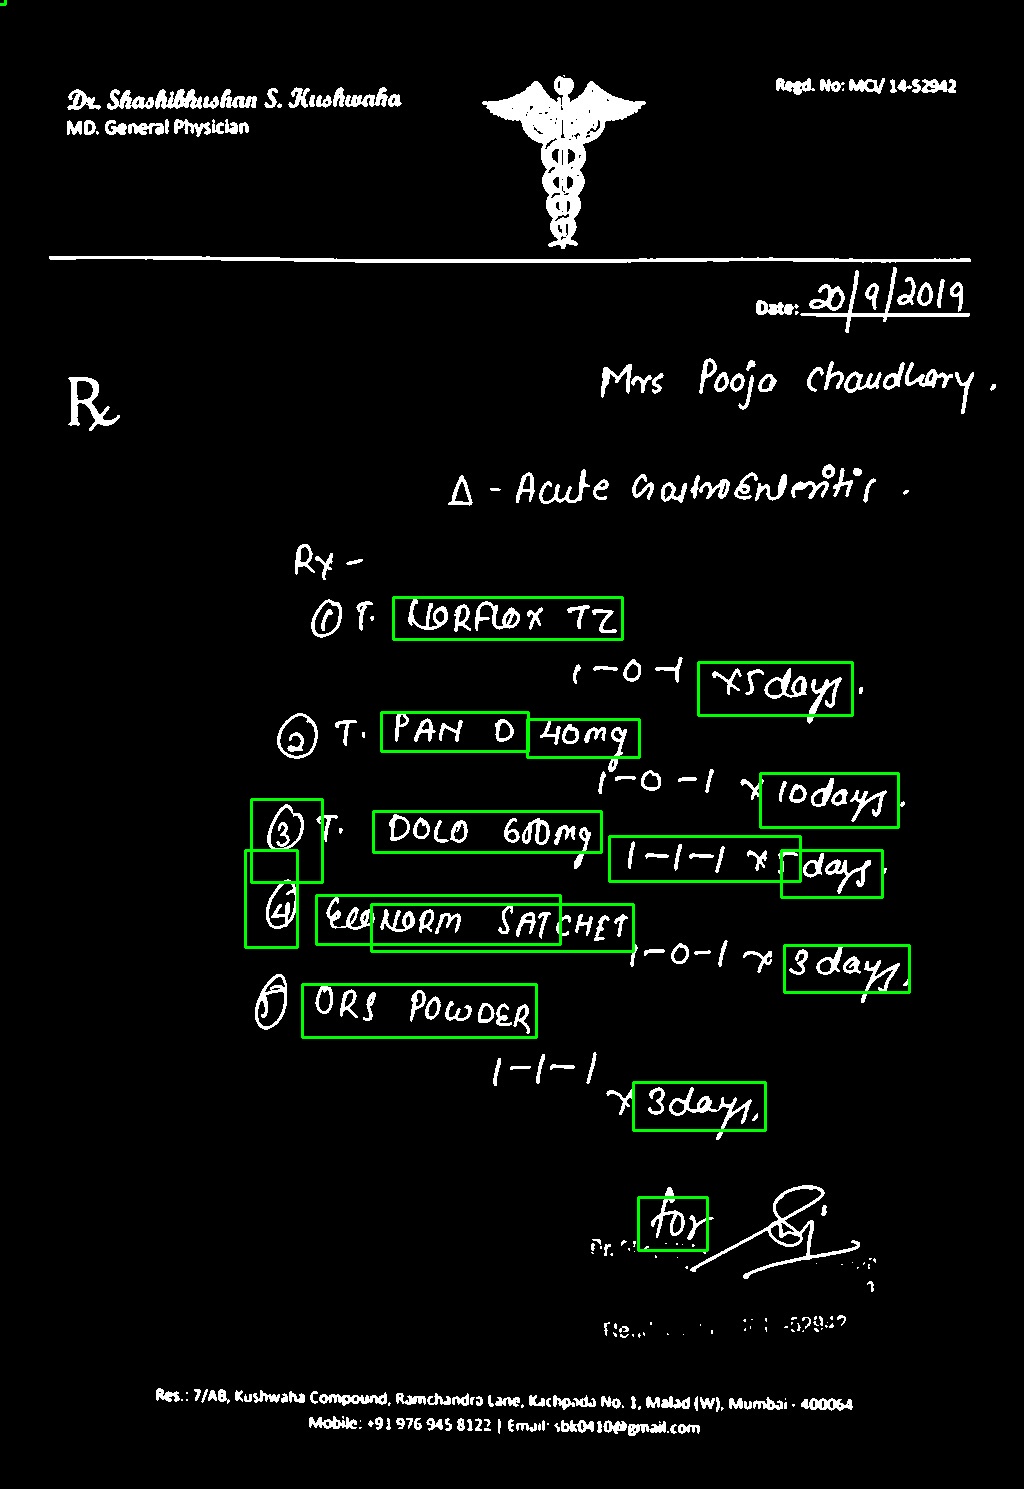 Dr. Shashibhushan S. Kushwaha
MD. General Physician
Regd. No: MCI/ 14-52942
Date: 20/9/2019
Mrs Pooja Chaudhary.
Rx
Δ - Acute Gastroenteritis.
Rx -
① T. NORFLOX TZ
1-0-1 x5days.
② T. PAN D 40mg
1-0-1 x 10days.
③ T. DOLO 650mg
1-1-1 x 5days.
④ ECONORM SATCHET
1-0-1 x 3days.
⑤ ORS POWDER
1-1-1
x 3days.
for
Dr.
-52942
Res.: 7/AB, Kushwaha Compound, Ramchandra Lane, Kachpada No. 1, Malad (W), Mumbai - 400064
Mobile: +91 976 945 8122 | Email: sbk0410@gmail.com